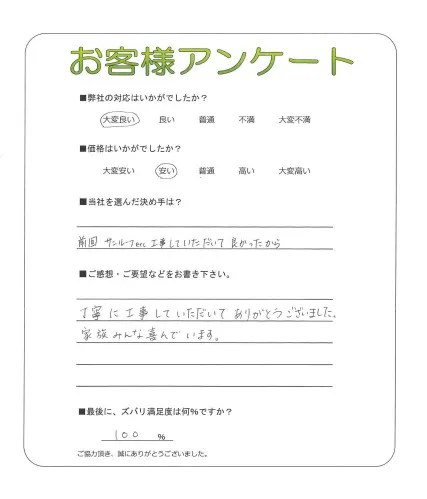 お客様アンケート
■弊社の対応はいかがでしたか？
大変良い 良い 普通 不満 大変不満
■価格はいかがでしたか？
大変安い 安い 普通 高い 大変高い
■当社を選んだ決め手は？
前回 サンルーフetc 工事していただいて 良かったから
■ご感想・ご要望などをお書き下さい。
丁寧に工事していただいて ありがとうございました。
家族みんな喜んでいます。
■最後に、ズバリ満足度は何%ですか？
100 %
ご協力頂き、誠にありがとうございました。